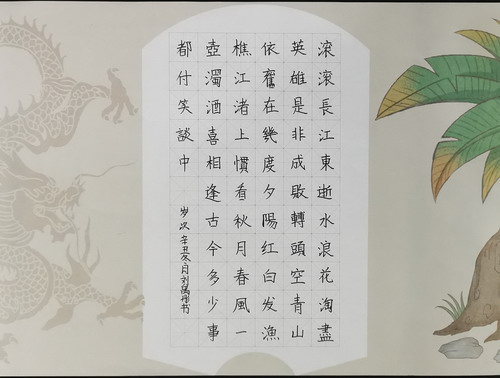 滚滚長江東逝水浪花淘盡
英雄是非成败轉頭空青山
依舊在幾度夕陽红白发漁
樵江渚上慣看秋月春風一
壺濁酒喜相逢古今多少事
都付笑談中
岁次辛丑冬月刘彤书